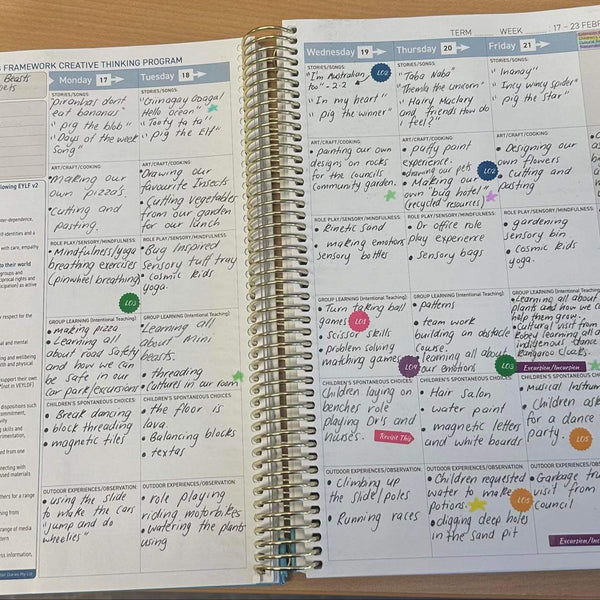 FRAMEWORK CREATIVE THINKING PROGRAM
Beasts
Monday 17
STORIES/SONGS:
"piranhas dont
eat bananas"
"pig the blob"
"Days of the week
song"
ART/CRAFT/COOKING:
• Making our
own pizza's
• Cutting and
pasting.
ROLE PLAY/SENSORY/MINDFULNESS:
• Mindfulness/yoga
breathing exercises
(pinwheel breathing)
LO3
GROUP LEARNING (Intentional Teaching):
• making pizza
• Learning all
about road safety
and how we can
be safe in our
car park excursions
CHILDREN'S SPONTANEOUS CHOICES:
• Break dancing
• block threading
• magnetic tiles
OUTDOOR EXPERIENCES/OBSERVATION:
• using the slide
to make the cars
"jump and do
wheelies"
Tuesday 18
STORIES/SONGS:
Hello Ocean"
"Tooty ta ta"
"pig the Elf"
ART/CRAFT/COOKING:
• Drawing our
favourite Insects
• Cutting vegetables
from our garden
for our lunch
ROLE PLAY/SENSORY/MINDFULNESS:
• Bug inspired
sensory tuff tray
• cosmic kids
yoga.
GROUP LEARNING (Intentional Teaching):
Learning all
about mini
beasts.
• threading
• Cultures in our room
CHILDREN'S SPONTANEOUS CHOICES:
• the floor is
lava.
• Balancing blocks
• textas
OUTDOOR EXPERIENCES/OBSERVATION:
• role playing
riding motorbikes
• watering the plants
using
TERM WEEK 17 - 23 FEBR
Wednesday 19
STORIES/SONGS:
"Im Australian
too" - 2.2
LO2
"In my heart"
"pig the winner"
ART/CRAFT/COOKING:
• painting our own
designs on rocks
for the councils
Community garden.
ROLE PLAY/SENSORY/MINDFULNESS:
• Kinetic sand
• making emotions
sensory bottles
GROUP LEARNING (Intentional Teaching):
Turn taking ball
games
LO1
• scissor skills
• problem solving
matching games
LO4
CHILDREN'S SPONTANEOUS CHOICES:
Children laying on
benches role
playing Dr's and
nurses.
Revisit This
OUTDOOR EXPERIENCES/OBSERVATION:
• Climbing up
the slide/poles
• Running races
Thursday 20
STORIES/SONGS:
"Taba Naba"
"Thelma the Unicorn"
"Hairy Maclary
and friends How do
I feel?"
ART/CRAFT/COOKING:
• puffy paint
experience.
• drawing our pets
LO2
• Making our
own "bug hotel"
(recycled resources)
ROLE PLAY/SENSORY/MINDFULNESS:
• Dr office role
play experience
• Sensory bags
GROUP LEARNING (Intentional Teaching):
• patterns
• team work
building an obstacle
course.
• learning all about
our emotions
LO3
CHILDREN'S SPONTANEOUS CHOICES:
• Hair Salon
• water paint
• magnetic letters
and white boards
OUTDOOR EXPERIENCES/OBSERVATION:
• Children requested
water to make
potions
LO5
• digging deep holes
in the sand pit
Friday 21
STORIES/SONGS:
"Inanay"
"Incy wincy spider"
"pig the star"
ART/CRAFT/COOKING:
• Designing our
own flowers
• Cutting and
pasting
ROLE PLAY/SENSORY/MINDFULNESS:
• gardening
sensory bin
• Cosmic Kids
yoga.
GROUP LEARNING (Intentional Teaching):
• Learning all about
plants and how we c
help them grow.
• Cultural visit from
learning all a
indigenous dance
Kangaroo Cloaks.
Excursion/Incursion
CHILDREN'S SPONTANEOUS CHOICES:
• Musical Instrum
• Children ask
for a dance
party.
LO5
OUTDOOR EXPERIENCES/OBSERVATION:
• Garbage tru
visit from
council
Excursion/Incur